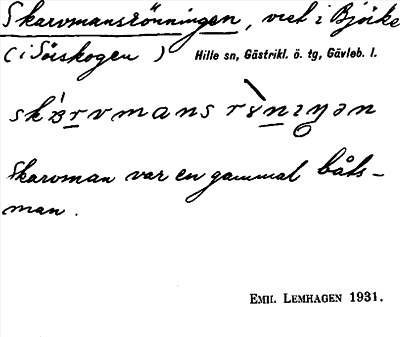 Skarvmansrönningen, vret i Björke
(i Söiskogen) Hille sn, Gästrikl. ö. tg, Gävleb. l.
Skarvman var en gammal båts-
man.
EMIL LEMHAGEN 1931.